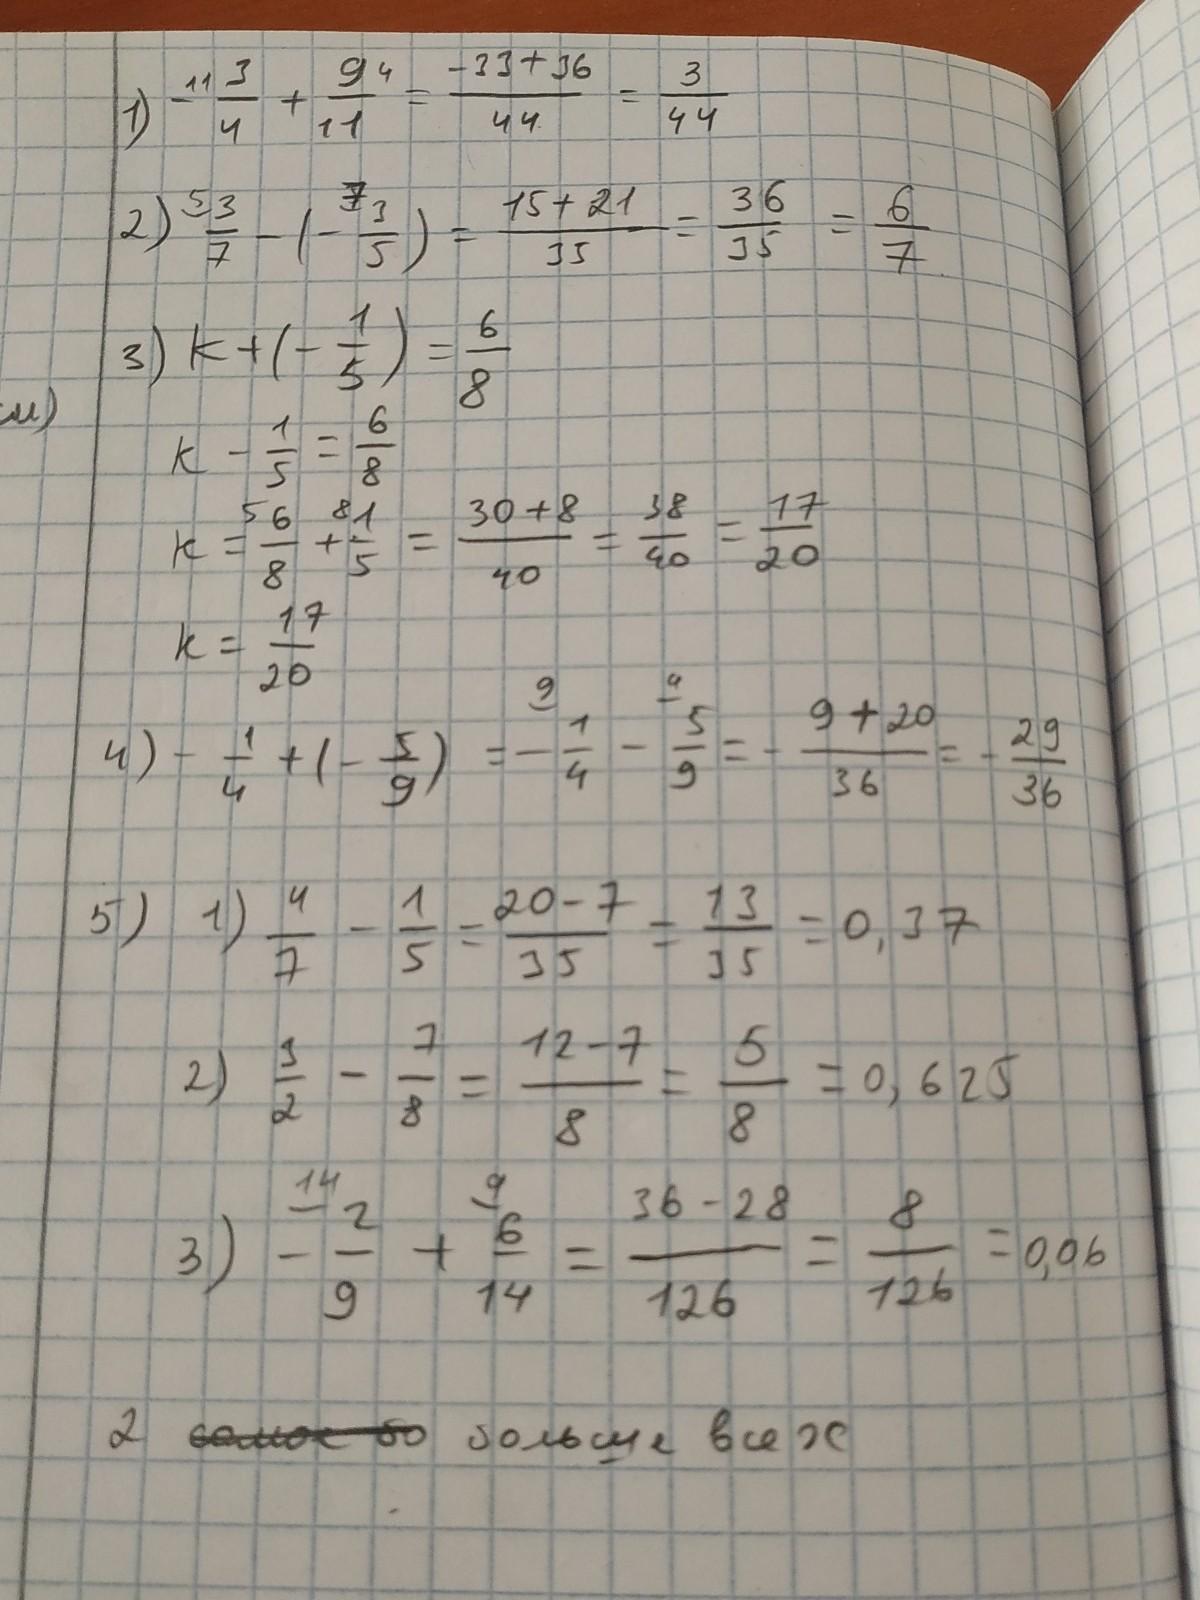 1) -¹¹3/4 + 9⁴/11 = (-33+36)/44 = 3/44
2) ⁵3/7 - (-⁷3/5) = (15+21)/35 = 36/35 = 6/7
3) k+(-1/5) = 6/8
k - 1/5 = 6/8
k = ⁵6/8 + ⁸1/5 = (30+8)/40 = 38/40 = 17/20
k = 17/20
4) -1/4 + (-5/9) = -⁹1/4 - ⁴5/9 = -(9+20)/36 = -29/36
5) 1) 4/7 - 1/5 = (20-7)/35 = 13/35 = 0,37
2) 3/2 - 7/8 = (12-7)/8 = 5/8 = 0,625
3) -¹⁴2/9 + ⁹6/14 = (36-28)/126 = 8/126 = 0,06
2 больше всех